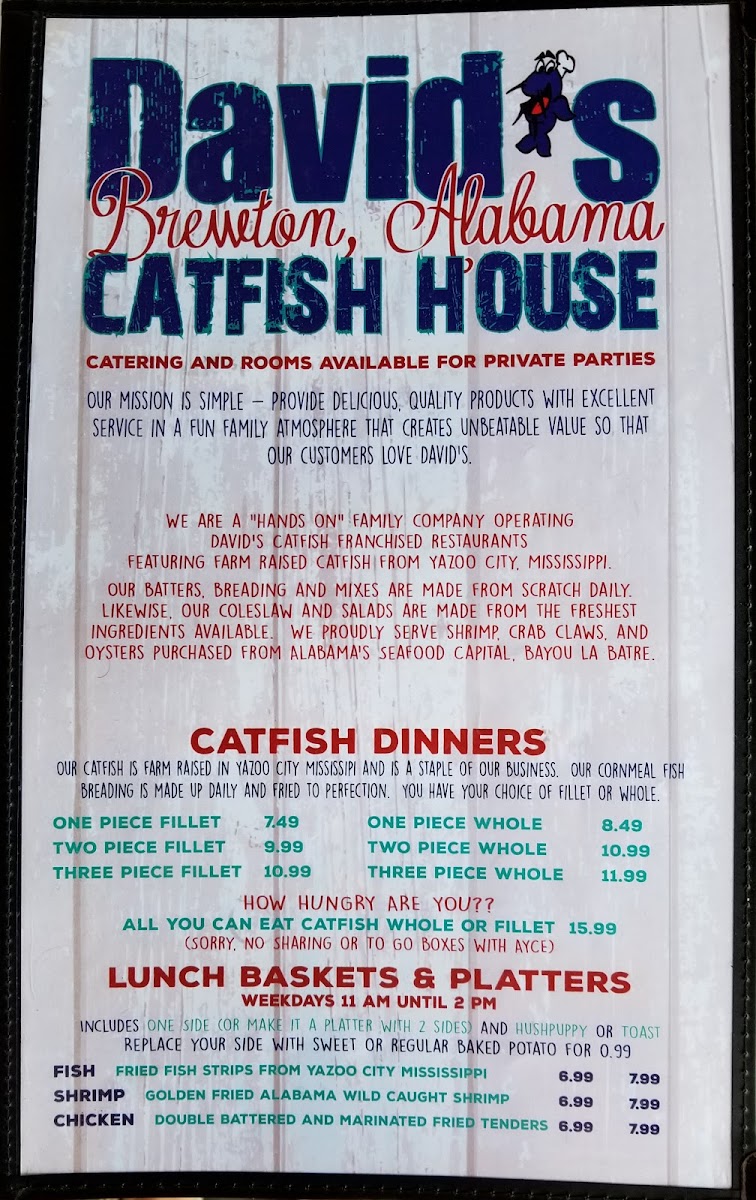 David's
Brewton, Alabama
CATFISH HOUSE
CATERING AND ROOMS AVAILABLE FOR PRIVATE PARTIES
OUR MISSION IS SIMPLE – PROVIDE DELICIOUS, QUALITY PRODUCTS WITH EXCELLENT
SERVICE IN A FUN FAMILY ATMOSPHERE THAT CREATES UNBEATABLE VALUE SO THAT
OUR CUSTOMERS LOVE DAVID'S.
WE ARE A "HANDS ON" FAMILY COMPANY OPERATING
DAVID'S CATFISH FRANCHISED RESTAURANTS
FEATURING FARM RAISED CATFISH FROM YAZOO CITY, MISSISSIPPI.
OUR BATTERS, BREADING AND MIXES ARE MADE FROM SCRATCH DAILY.
LIKEWISE, OUR COLESLAW AND SALADS ARE MADE FROM THE FRESHEST
INGREDIENTS AVAILABLE. WE PROUDLY SERVE SHRIMP, CRAB CLAWS, AND
OYSTERS PURCHASED FROM ALABAMA'S SEAFOOD CAPITAL, BAYOU LA BATRE.
CATFISH DINNERS
OUR CATFISH IS FARM RAISED IN YAZOO CITY MISSISSIPI AND IS A STAPLE OF OUR BUSINESS. OUR CORNMEAL FISH
BREADING IS MADE UP DAILY AND FRIED TO PERFECTION. YOU HAVE YOUR CHOICE OF FILLET OR WHOLE.
ONE PIECE FILLET 7.49 ONE PIECE WHOLE 8.49
TWO PIECE FILLET 9.99 TWO PIECE WHOLE 10.99
THREE PIECE FILLET 10.99 THREE PIECE WHOLE 11.99
HOW HUNGRY ARE YOU??
ALL YOU CAN EAT CATFISH WHOLE OR FILLET 15.99
(SORRY, NO SHARING OR TO GO BOXES WITH AYCE)
LUNCH BASKETS & PLATTERS
WEEKDAYS 11 AM UNTIL 2 PM
INCLUDES ONE SIDE (OR MAKE IT A PLATTER WITH 2 SIDES) AND HUSHPUPPY OR TOAST
REPLACE YOUR SIDE WITH SWEET OR REGULAR BAKED POTATO FOR 0.99
FISH FRIED FISH STRIPS FROM YAZOO CITY MISSISSIPPI 6.99 7.99
SHRIMP GOLDEN FRIED ALABAMA WILD CAUGHT SHRIMP 6.99 7.99
CHICKEN DOUBLE BATTERED AND MARINATED FRIED TENDERS 6.99 7.99